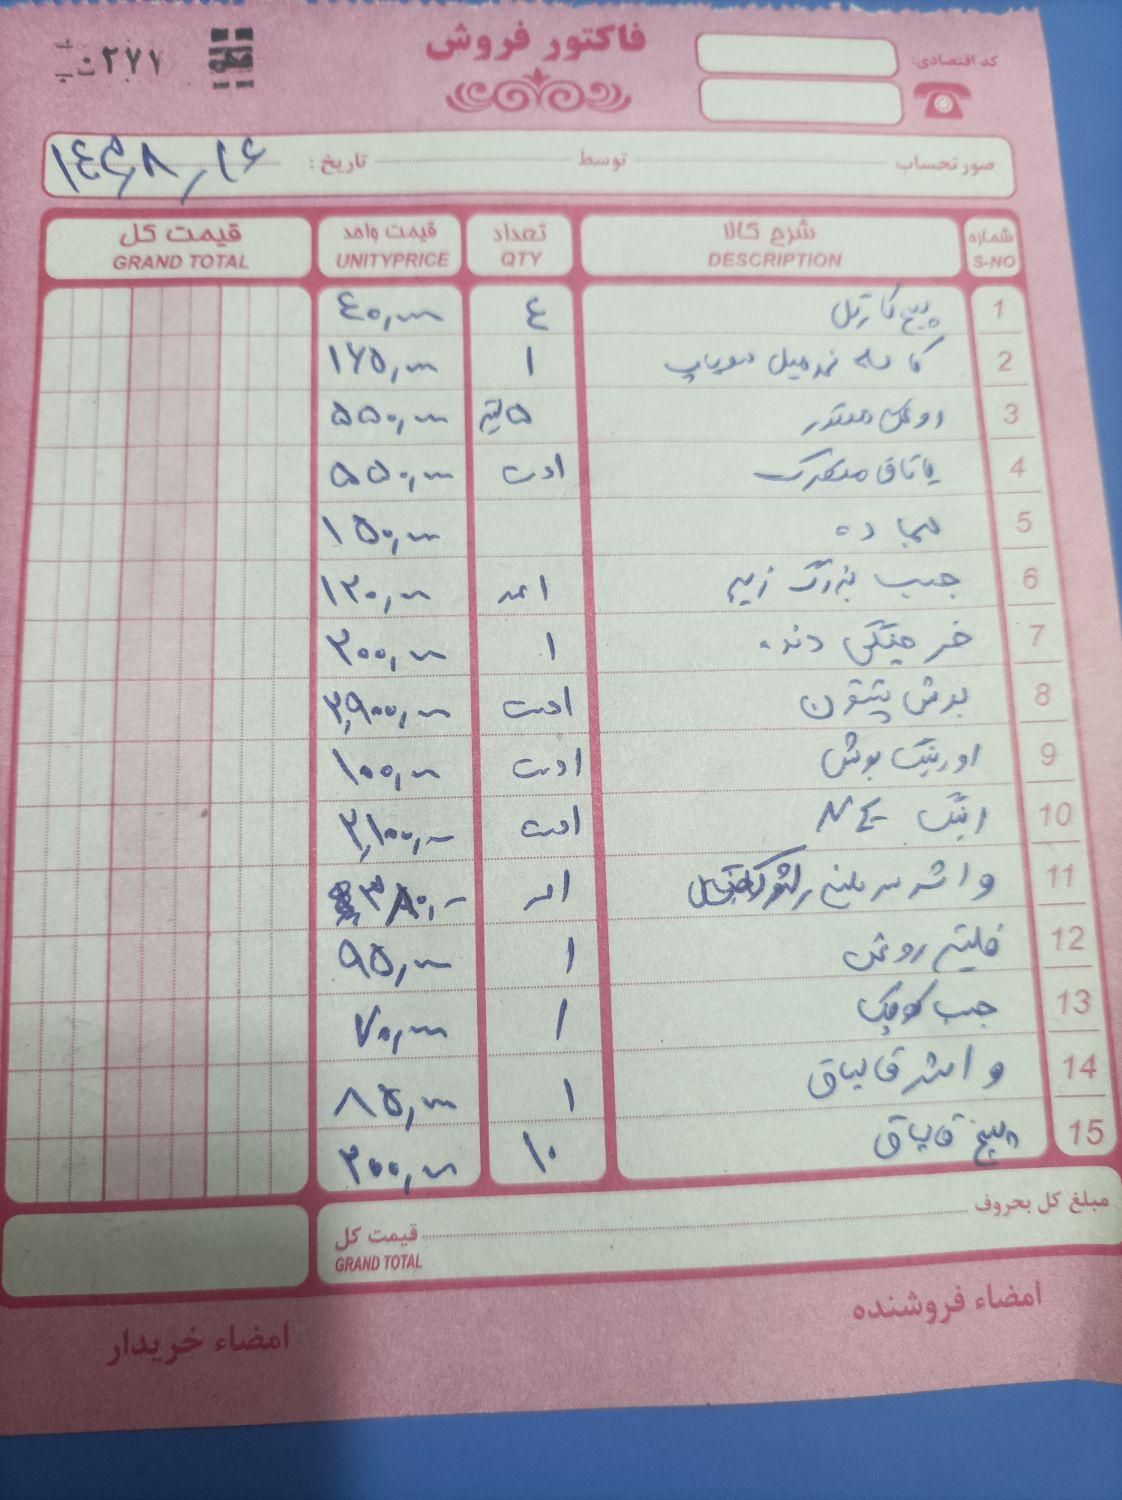 ۲۷۱ ن پ
فاکتور فروش
کد اقتصادی:
صورتحساب توسط تاریخ : ۱۴۰۳/۸/۱۶
شماره شرح کالا تعداد قیمت واحد قیمت کل
S-NO DESCRIPTION QTY UNITYPRICE GRAND TOTAL
1 پیچ کارتل ٤ ٤۰,۰۰۰
2 کاسه نمد میل سوپاپ ۱ ۱۶۵,۰۰۰
3 روغن ۵ لیتر ۵۵۰,۰۰۰
4 یاتاقان متحرک ۱دست ۵۵۰,۰۰۰
5 ۱۵۰,۰۰۰
6 چسب بزرگ ۱عدد ۱۲۰,۰۰۰
7 خرچنگی دنده ۱ ۲۰۰,۰۰۰
8 بوش پیستون ۱دست ۲,۹۰۰,۰۰۰
9 اورینگ بوش ۱دست ۱۰۰,۰۰۰
10 رینگ ۱دست ۲,۱۰۰,۰۰۰
11 واشر ۳۸۰,۰۰۰
12 فیلتر روغن ۱ ۹۵,۰۰۰
13 چسب کوچک ۱ ۷۰,۰۰۰
14 واشر قالپاق ۱ ۸۵,۰۰۰
15 پیچ قالپاق ۱۰ ۲۰۰,۰۰۰
مبلغ کل بحروف قیمت کل
GRAND TOTAL
امضاء فروشنده
امضاء خریدار